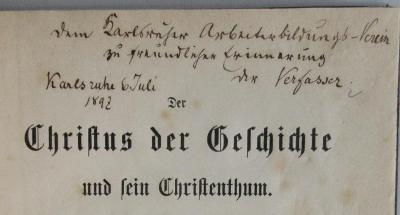 Dem Karlsruher Arbeiterbildungs-Verein
zu freundlicher Erinnerung
der Verfasser.
Karlsruhe 6 Juli
1892
Der
Christus der Geschichte
und sein Christenthum.